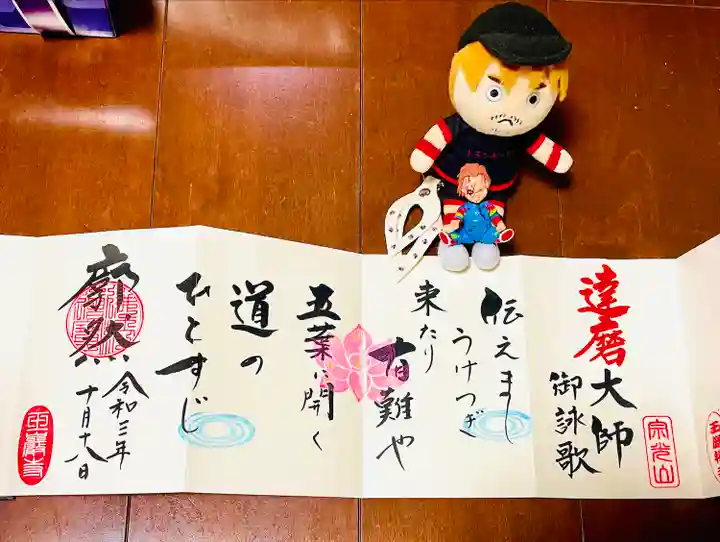 達磨大師
御詠歌
宗光山
伝えまし
うけつぎ
来たり
有難や
五葉に開く
道の
ひとすじ
廓然
令和三年
十月十八日